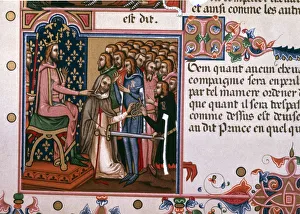 est dit.
et ainsi comme les autre
Item quant aucun excu
compaignie sera en peril
par tel maniere ordener
que quant il sera trespas
comme dessus est deuise
au dit Prince en quel q